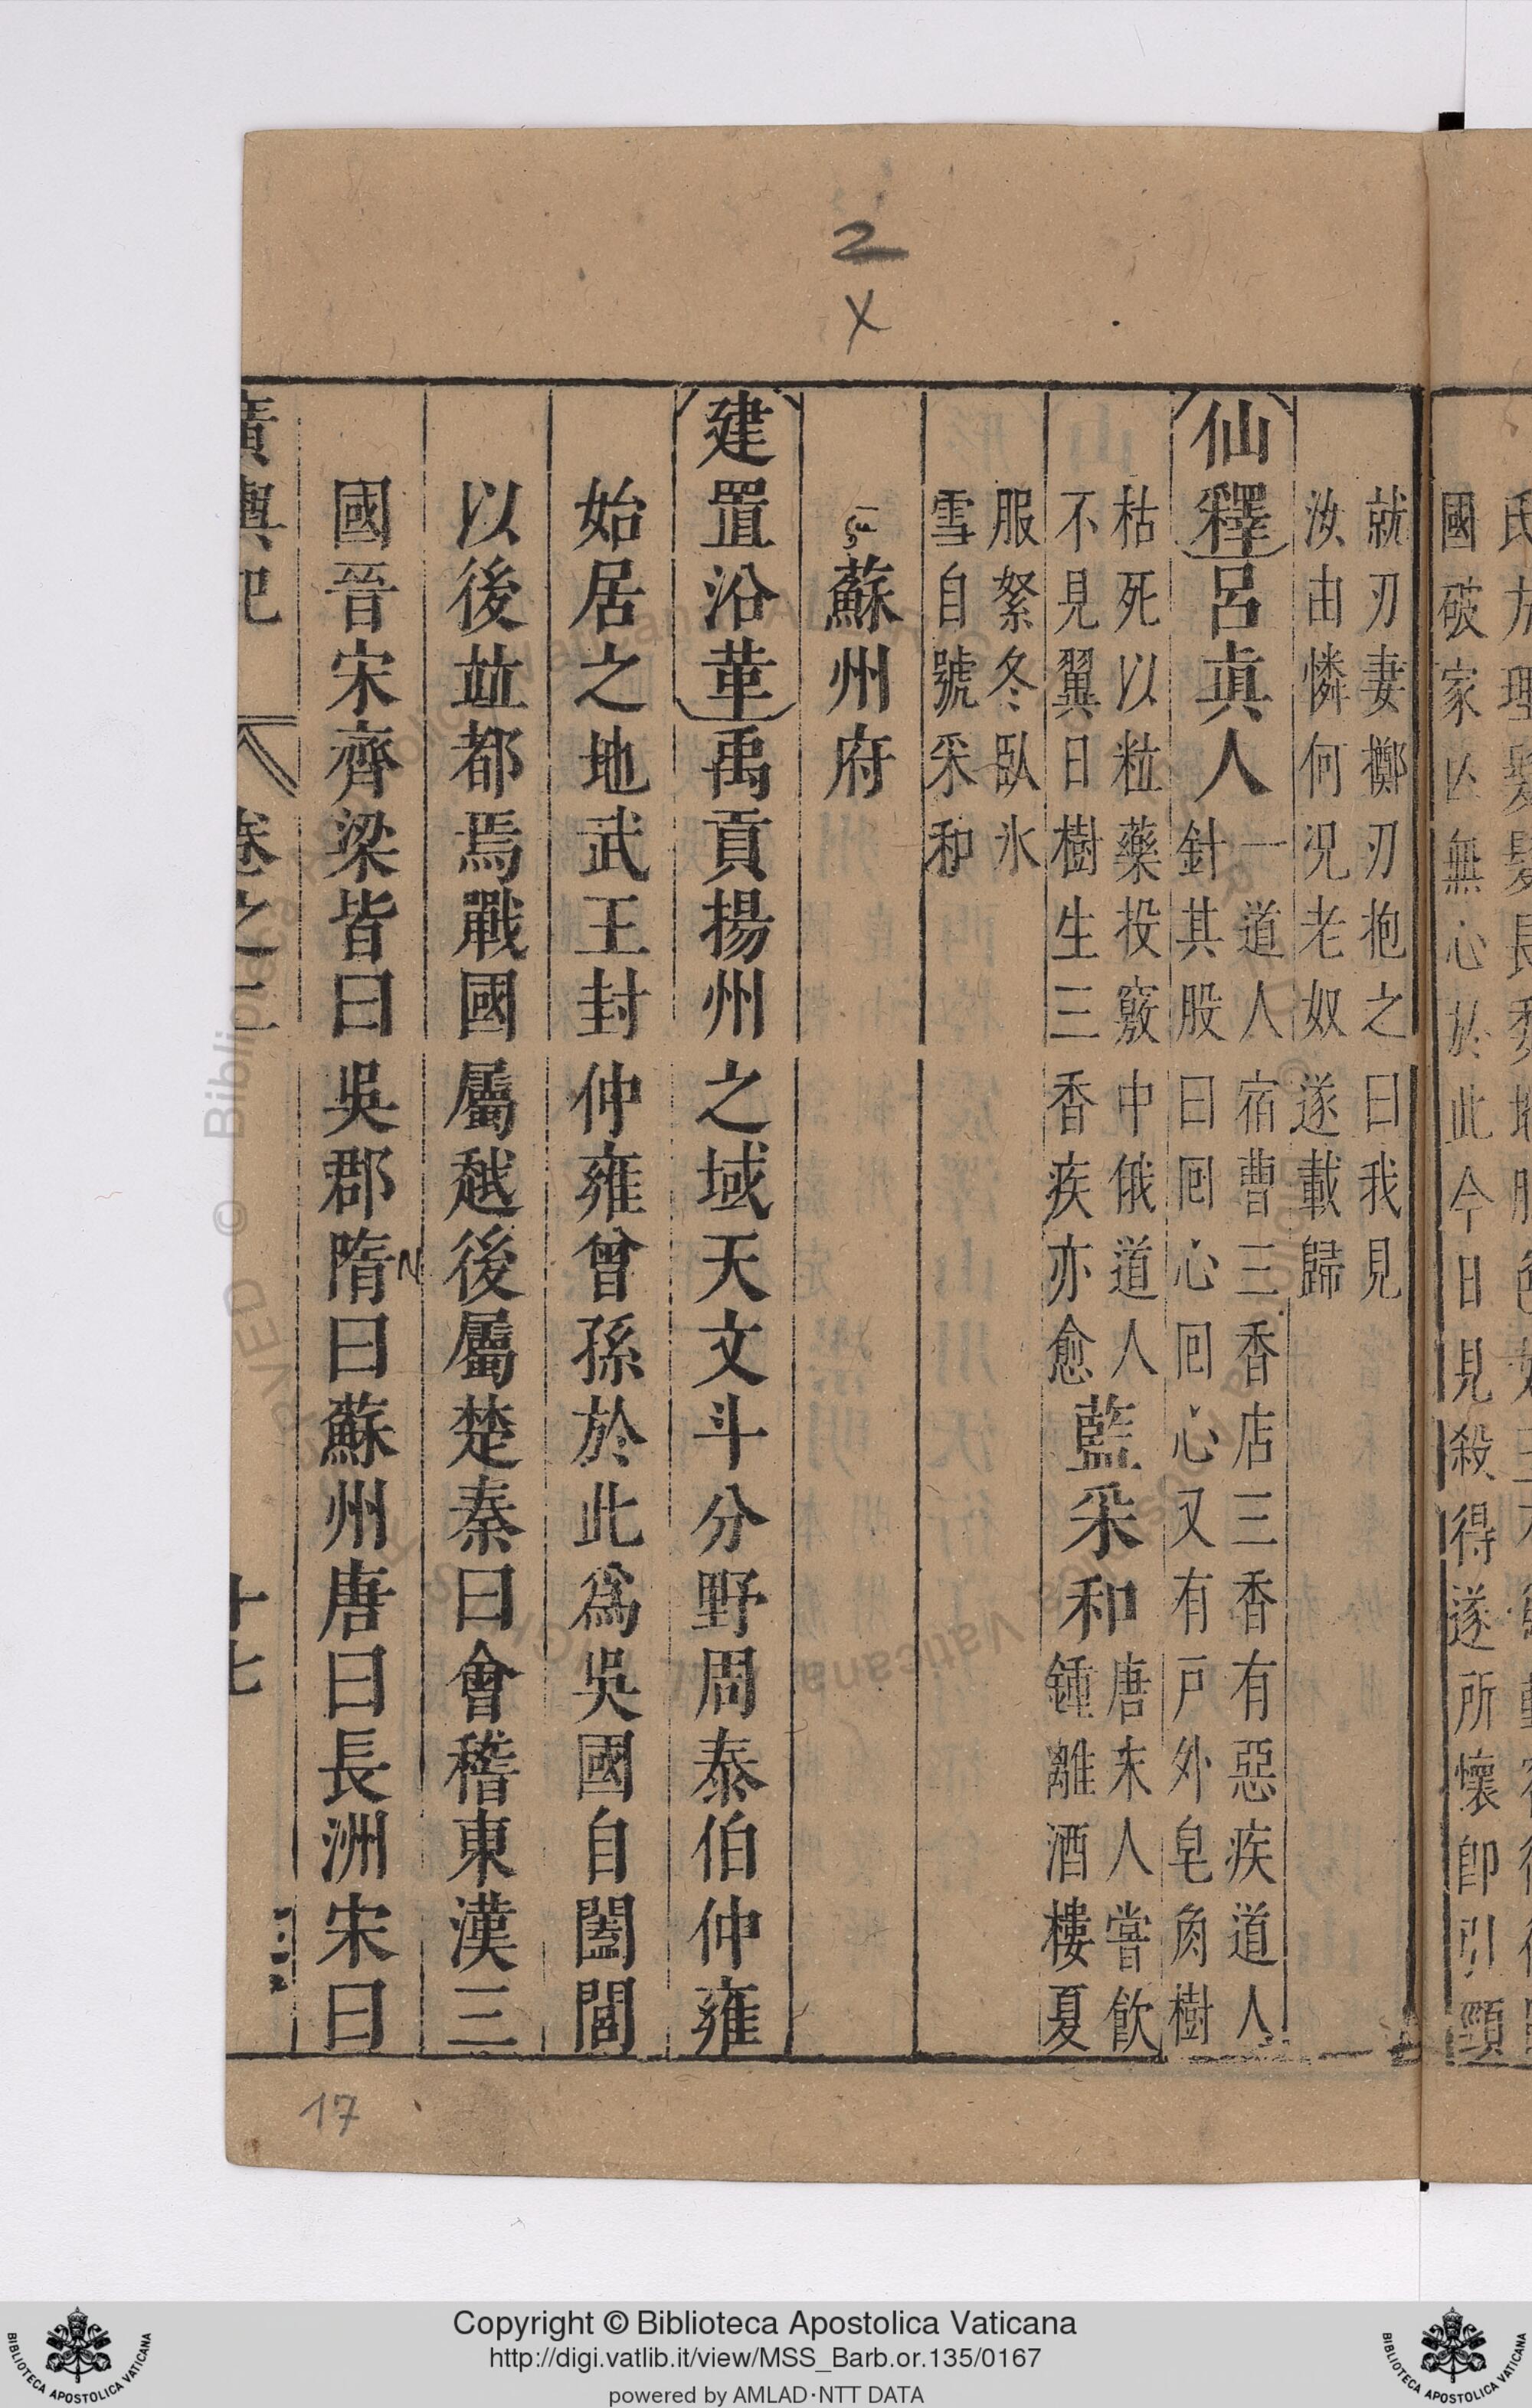 國破家亡無心於此今日見殺得遂所懷卽引頸
就刃妻擲刃抱之曰我見
汝由憐何况老奴遂載歸
仙釋呂真人
一道人宿曹三香店三香有惡疾道人
針其股曰囘心囘心又有戸外皂角樹
枯死以粒藥投竅中俄道人
不見翼日樹生三香疾亦愈
藍采和
唐末人嘗飲
鍾離酒樓夏
服絮冬臥氷
雪自號采和
蘇州府
建置沿革禹貢揚州之域天文斗分野周泰伯仲雍
始居之地武王封仲雍曾孫於此爲吳國自闔閭
以後竝都焉戰國屬越後屬楚秦曰會稽東漢三
國晉宋齊梁皆曰吳郡隋曰蘇州唐曰長洲宋曰
廣輿記 卷之二 十七
2
X
17
Copyright © Biblioteca Apostolica Vaticana
http://digi.vatlib.it/view/MSS_Barb.or.135/0167
powered by AMLAD·NTT DATA
BIBLIOTECA APOSTOLICA VATICANA
BIBLIOTECA APOSTOLICA VATICANA